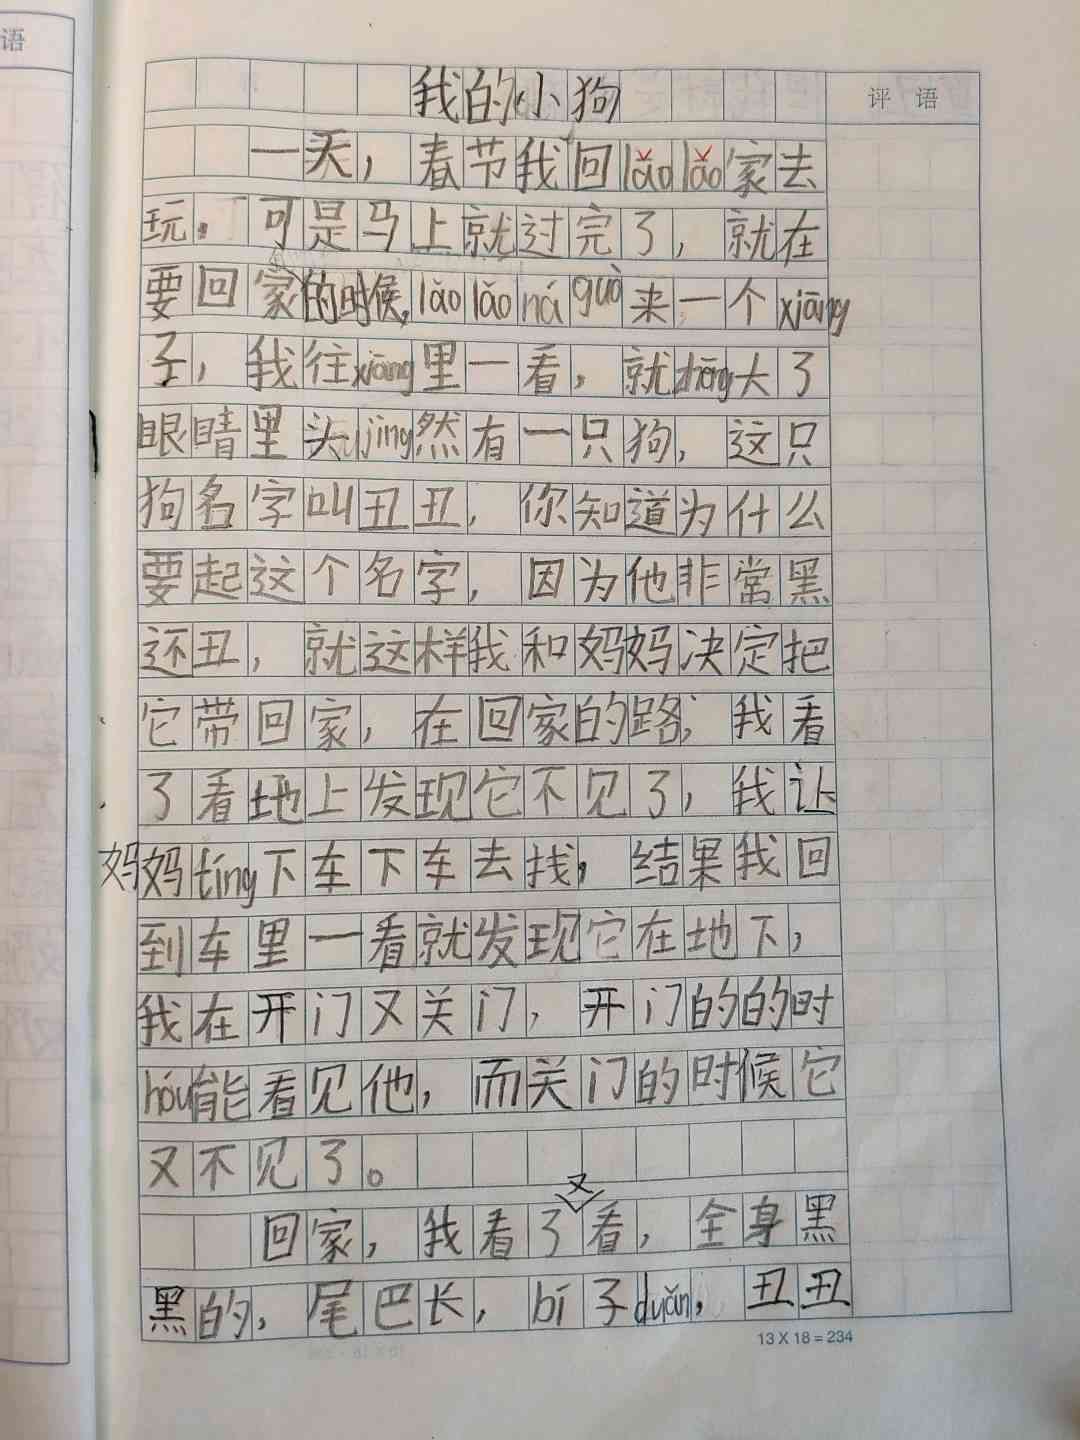 语
我的小狗
评 语
一天，春节我回lǎo lǎo家去
玩。可是马上就过完了，就在
要回家的时候，lǎo lǎo ná guò来一个xiāng
子，我往xiāng里一看，就zhēng大了
眼睛里头jīng然有一只狗，这只
狗名字叫丑丑，你知道为什么
要起这个名字，因为他非常黑
还丑，就这样我和妈妈决定把
它带回家，在回家的路；我看
了看地上发现它不见了，我让
妈妈tíng下车下车去找，结果我回
到车里一看就发现它在地下，
我在开门又关门，开门的的时
hóu能看见他，而关门的时候它
又不见了。
回家，我看了又看，全身黑
黑的，尾巴长，bí子duǎn，丑丑
13 X 18 = 234